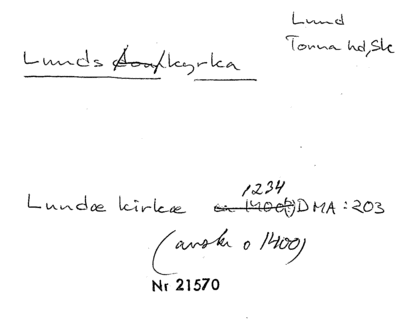 Lund
Torna hd, Sk
Lunds kyrka
1234
Lundæ kirkæ ca 1400(?) DMA: 203
(avskr o 1400)
Nr 21570